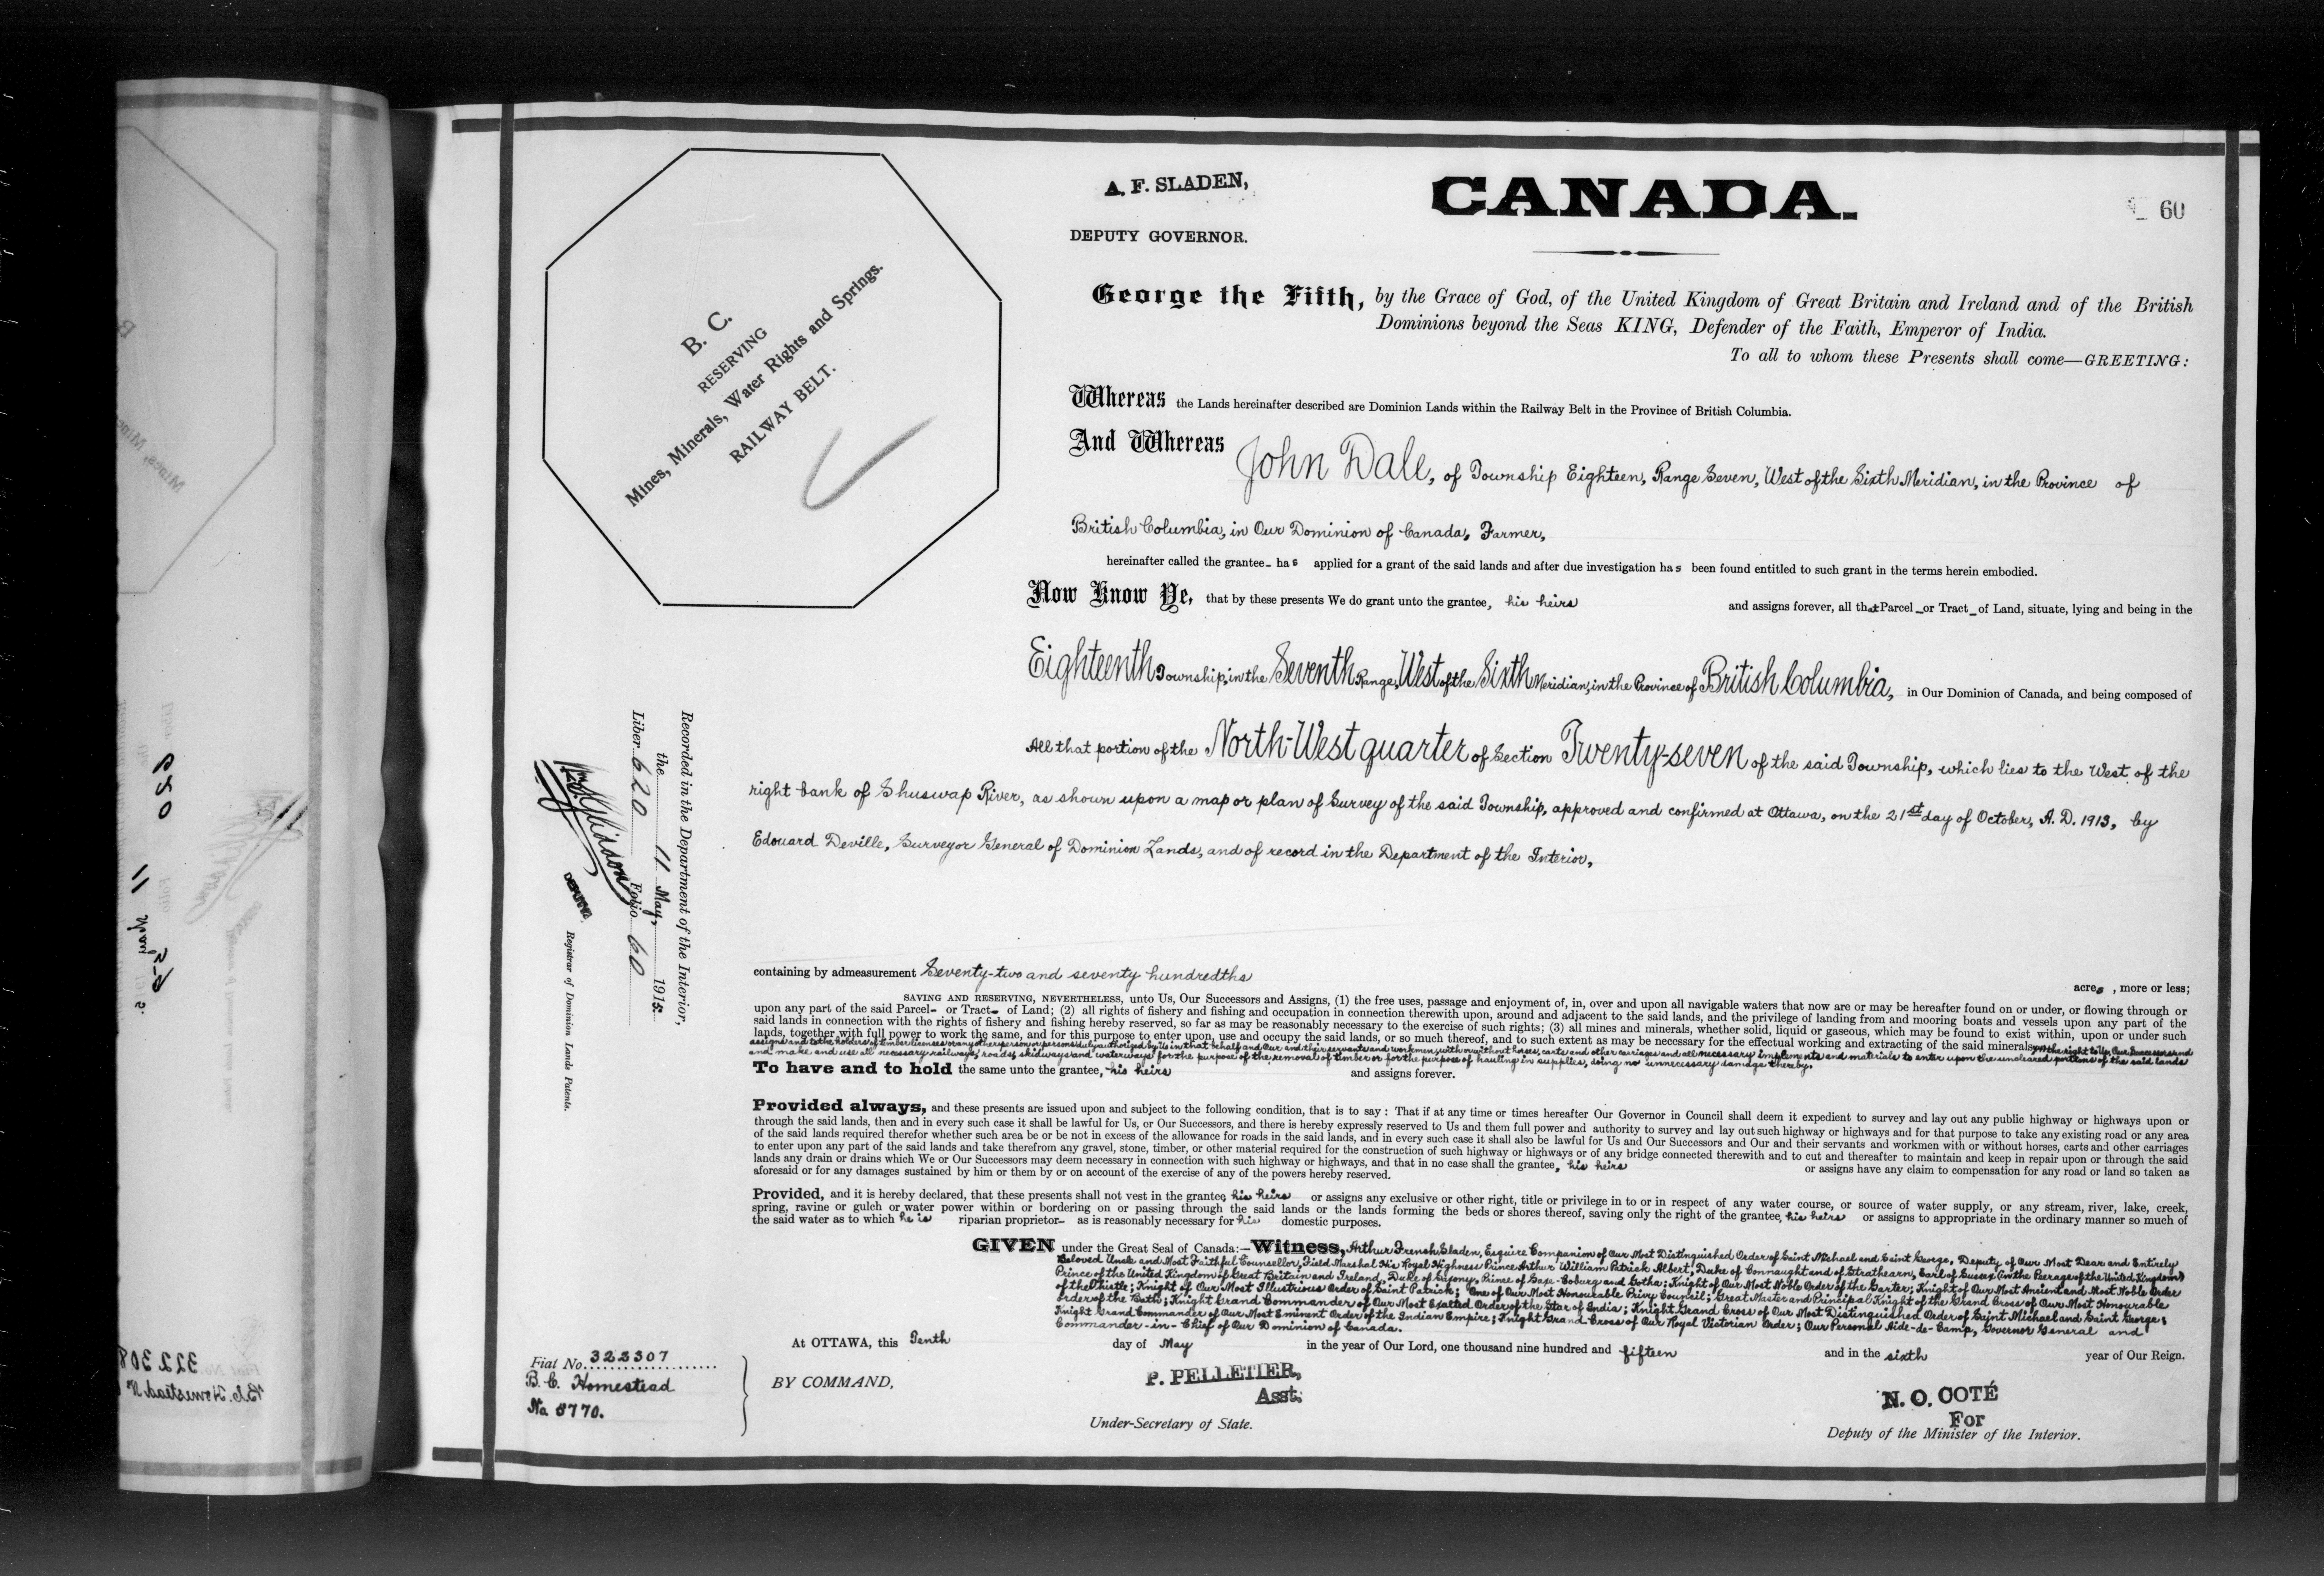 A. F. SLADEN,
DEPUTY GOVERNOR.
CANADA.
60
B. C.
RESERVING
Mines, Minerals, Water Rights and Springs.
RAILWAY BELT.
George the Fifth, by the Grace of God, of the United Kingdom of Great Britain and Ireland and of the British
Dominions beyond the Seas KING, Defender of the Faith, Emperor of India.
To all to whom these Presents shall come—GREETING:
Whereas the Lands hereinafter described are Dominion Lands within the Railway Belt in the Province of British Columbia.
And Whereas John Dale, of Township Eighteen, Range Seven, West of the Sixth Meridian, in the Province of
British Columbia, in Our Dominion of Canada, Farmer,
hereinafter called the grantee- has applied for a grant of the said lands and after due investigation has been found entitled to such grant in the terms herein embodied.
Now Know Ye, that by these presents We do grant unto the grantee, his heirs and assigns forever, all that Parcel - or Tract - of Land, situate, lying and being in the
Eighteenth Township, in the Seventh Range, West of the Sixth Meridian, in the Province of British Columbia, in Our Dominion of Canada, and being composed of
All that portion of the North-West quarter of Section Twenty-seven of the said Township, which lies to the West of the
right bank of Shuswap River, as shown upon a map or plan of Survey of the said Township, approved and confirmed at Ottawa, on the 21st day of October, A. D. 1913, by
Edouard Deville, Surveyor General of Dominion Lands, and of record in the Department of the Interior,
Recorded in the Department of the Interior,
the 11 May, 1915.
Liber 620 Folio 60
DEPUTY
Registrar of Dominion Lands Patents.
containing by admeasurement Seventy-two and seventy hundredths acres, more or less;
SAVING AND RESERVING, NEVERTHELESS, unto Us, Our Successors and Assigns, (1) the free uses, passage and enjoyment of, in, over and upon all navigable waters that now are or may be hereafter found on or under, or flowing through or
upon any part of the said Parcel- or Tract- of Land; (2) all rights of fishery and fishing and occupation in connection therewith upon, around and adjacent to the said lands, and the privilege of landing from and mooring boats and vessels upon any part of the
said lands in connection with the rights of fishery and fishing hereby reserved, so far as may be reasonably necessary to the exercise of such rights; (3) all mines and minerals, whether solid, liquid or gaseous, which may be found to exist within, upon or under such
lands, together with full power to work the same, and for this purpose to enter upon, use and occupy the said lands, or so much thereof, and to such extent as may be necessary for the effectual working and extracting of the said minerals; the right to Us, Our Successors and
assigns and to the holders of timber licenses or any other person or persons duly authorized by Us in that behalf and Our and their servants and workmen, with or without horses, carts and other carriages and all necessary implements and materials to enter upon the uncleared portions of the said lands
and make and use all necessary railways, roads, skidways and waterways for the purpose of the removal of timber or for the purpose of hauling in supplies, doing no unnecessary damage thereby.
To have and to hold the same unto the grantee, his heirs and assigns forever.
Provided always, and these presents are issued upon and subject to the following condition, that is to say: That if at any time or times hereafter Our Governor in Council shall deem it expedient to survey and lay out any public highway or highways upon or
through the said lands, then and in every such case it shall be lawful for Us, or Our Successors, and there is hereby expressly reserved to Us and them full power and authority to survey and lay out such highway or highways and for that purpose to take any existing road or any area
of the said lands required therefor whether such area be or be not in excess of the allowance for roads in the said lands, and in every such case it shall also be lawful for Us and Our Successors and Our and their servants and workmen with or without horses, carts and other carriages
to enter upon any part of the said lands and take therefrom any gravel, stone, timber, or other material required for the construction of such highway or highways or of any bridge connected therewith and to cut and thereafter to maintain and keep in repair upon or through the said
lands any drain or drains which We or Our Successors may deem necessary in connection with such highway or highways, and that in no case shall the grantee, his heirs or assigns have any claim to compensation for any road or land so taken as
aforesaid or for any damages sustained by him or them by or on account of the exercise of any of the powers hereby reserved.
Provided, and it is hereby declared, that these presents shall not vest in the grantee, his heirs or assigns any exclusive or other right, title or privilege in to or in respect of any water course, or source of water supply, or any stream, river, lake, creek,
spring, ravine or gulch or water power within or bordering on or passing through the said lands or the lands forming the beds or shores thereof, saving only the right of the grantee, his heirs or assigns to appropriate in the ordinary manner so much of
the said water as to which he is riparian proprietor- as is reasonably necessary for his domestic purposes.
GIVEN under the Great Seal of Canada:—Witness, Arthur French Sladen, Esquire Companion of Our Most Distinguished Order of Saint Michael and Saint George, Deputy of Our Most Dear and Entirely
Beloved Uncle and Most Faithful Counsellor, Field Marshal His Royal Highness Prince Arthur William Patrick Albert, Duke of Connaught and of Strathearn, Earl of Sussex (in the Peerage of the United Kingdom)
Prince of the United Kingdom of Great Britain and Ireland, Duke of Saxony, Prince of Saxe-Coburg and Gotha; Knight of Our Most Noble Order of the Garter; Knight of Our Most Ancient and Most Noble Order
of the Thistle; Knight of Our Most Illustrious Order of Saint Patrick; One of Our Most Honourable Privy Council; Great Master and Principal Knight of the Grand Cross of Our Most Honourable
Order of the Bath; Knight Grand Commander of Our Most Exalted Order of the Star of India; Knight Grand Cross of Our Most Distinguished Order of Saint Michael and Saint George;
Knight Grand Commander of Our Most Eminent Order of the Indian Empire; Knight Grand Cross of Our Royal Victorian Order; Our Personal Aide-de-Camp, Governor General and
Commander-in-Chief of Our Dominion of Canada.
At OTTAWA, this Tenth day of May in the year of Our Lord, one thousand nine hundred and fifteen and in the sixth year of Our Reign.
Fiat No. 322307
B. C. Homestead
No 5770.
BY COMMAND,
P. PELLETIER,
Asst.
Under-Secretary of State.
N. O. COTÉ
For
Deputy of the Minister of the Interior.